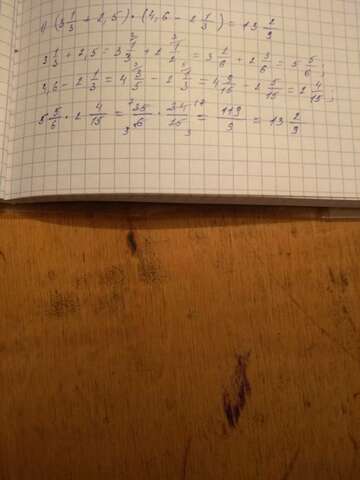 1) (3 1/3 + 2,5) · (4,6 - 2 1/3) = 13 2/9
3 1/3 + 2,5 = 3 1/3 + 2 1/2 = 3 2/6 + 2 3/6 = 5 5/6;
4,6 - 2 1/3 = 4 3/5 - 2 1/3 = 4 9/15 - 2 5/15 = 2 4/15;
5 5/6 · 2 4/15 = 35/6 · 34/15 = 119/9 = 13 2/9